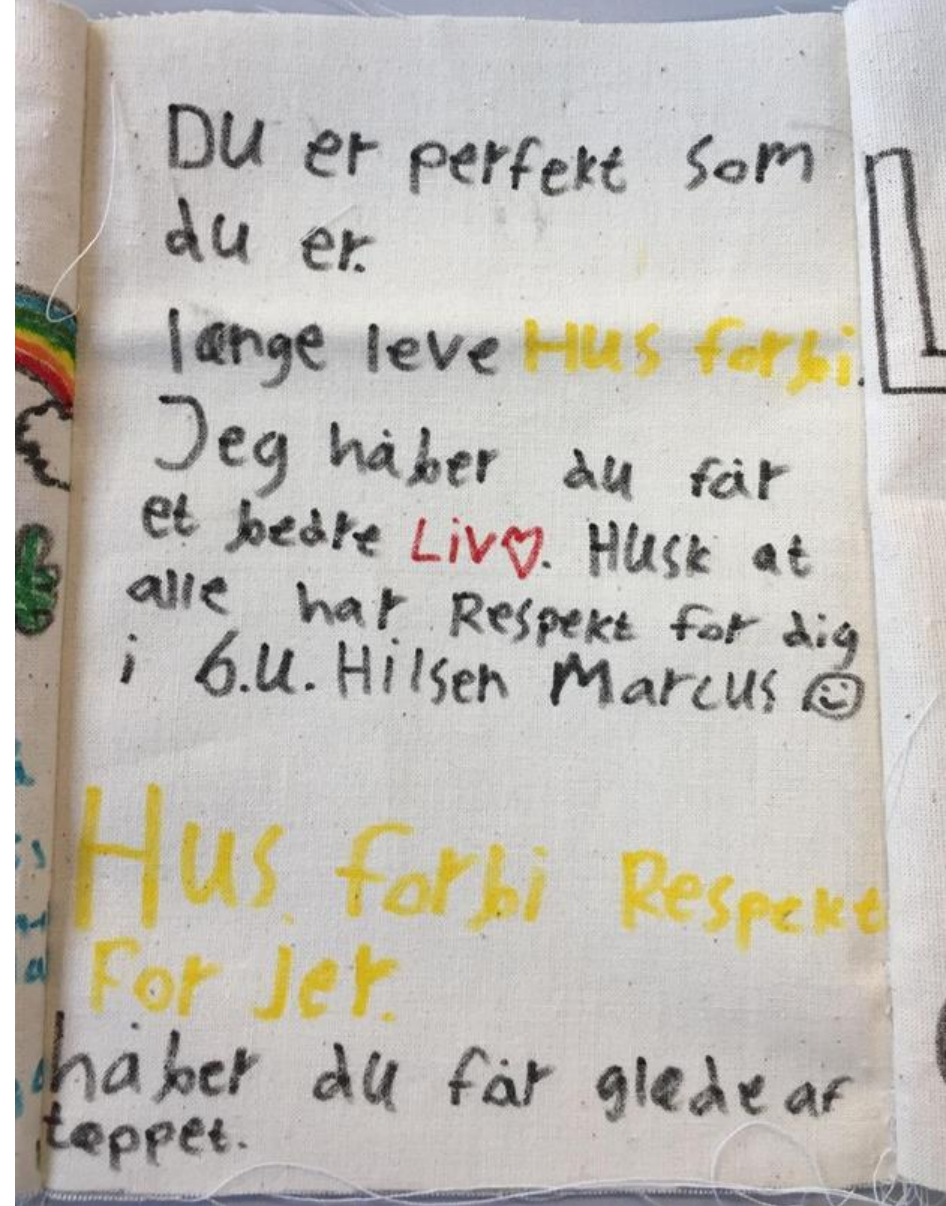 DU er perfekt som
du er.
længe leve Hus forbi.
Jeg håber du får
et bedre Liv♡. Husk at
alle har Respekt for dig
i 6.U. Hilsen Marcus ☺
Hus forbi Respekt
For Jer.
håber du får glæde af
tæppet.